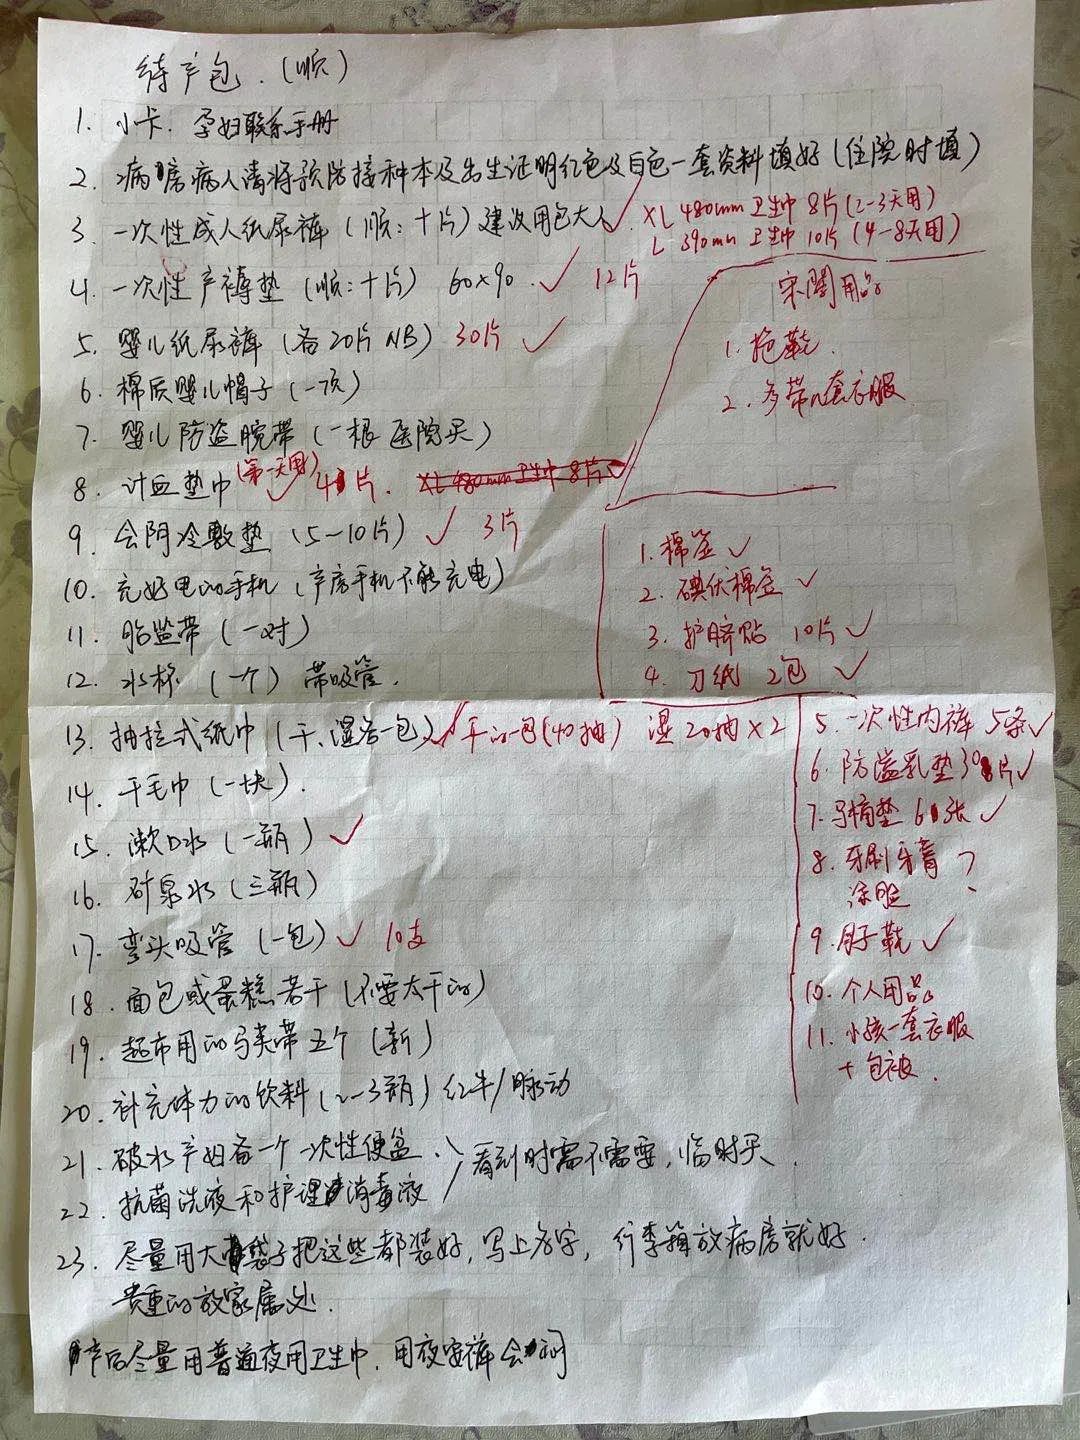 待产包.(顺)
1. 小卡. 孕妇联系手册
2. 病房病人请将预防接种本及出生证明红色及白色一套资料填好(住院时填)
3. 一次性成人纸尿裤(顺:十片)建议用包大人✓ XL 480mm 卫生巾 8片(2-3天用)
L 390mm 卫生巾 10片 (4-8天用)
4. 一次性产褥垫(顺:十片) 60×90 ✓ 12片
5. 婴儿纸尿裤(各20片 NB) 30片 ✓
6. 棉质婴儿帽子(一顶)
7. 婴儿防盗腕带(一根 医院买)
8. 计血垫巾(第一天用)✓ 4片. XL 480mm 卫生巾 8片✓
9. 会阴冷敷垫(5-10片) ✓ 3片
10. 充好电的手机(产房手机不能充电)
11. 胎监带(一对)
12. 水杯(一个)带吸管.
家用品
1. 拖鞋.
2. 多带几套衣服
1. 棉签 ✓
2. 碘伏棉签 ✓
3. 护脐贴 10片 ✓
4. 刀纸 2包 ✓
13. 抽拉式纸巾(干、湿各一包)✓ 干的一包(40抽) 湿 20抽×2
14. 干毛巾(一块).
15. 漱口水(一瓶) ✓
16. 矿泉水(三瓶)
17. 弯头吸管(一包) ✓ 10支
18. 面包或蛋糕若干(不要太干的)
19. 起布用的马夹带五个(新)
20. 补充体力的饮料(2-3瓶)红牛/脉动
21. 破水产妇备一个一次性便盆. 〉看到时需不需要,临时买.
22. 抗菌洗液和护理消毒液
23. 尽量用大袋子把这些都装好,写上名字,行李箱放病房就好.
贵重的放家属处.
产后尽量用普通夜用卫生巾. 用夜安裤会闷
5. 一次性内裤 5条✓
6. 防溢乳垫 30片✓
7. 马桶垫 6张 ✓
8. 牙刷牙膏 ?
涂脸
9. 月子鞋 ✓
10. 个人用品
11. 小孩一套衣服
+包被.